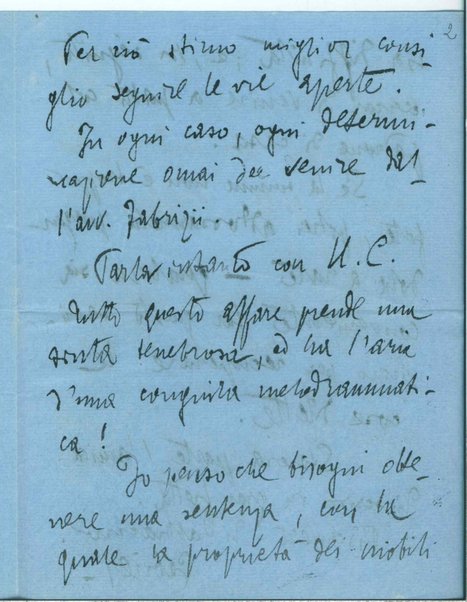 2
Perciò stimo miglior consi-
glio seguire le vie aperte.
In ogni caso, ogni determi-
nazione omai dee venire dal-
l'avv. Fabrizii.
Parla intanto con U. C.
Tutto questo affare prende una
tenebrosa, ed ha l'aria
d'una congiura melodrammati-
ca!
Io penso che bisogni otte-
nere una sentenza, con la
quale la proprietà dei mobili